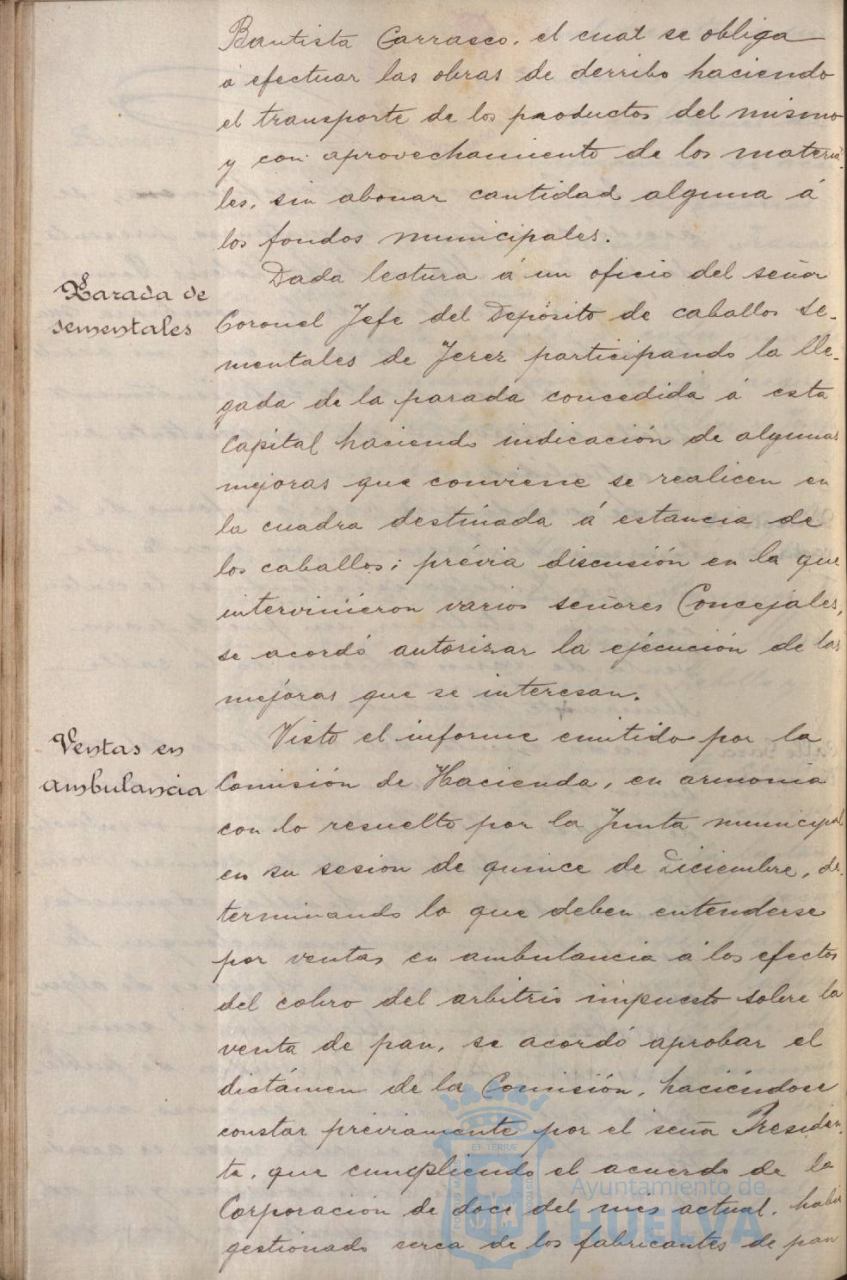 Bautista Carrasco, el cual se obliga
á efectuar las obras de derribo haciendo
el transporte de los productos del mismo
y con aprovechamiento de los materia-
les, sin abonar cantidad alguna á
los fondos municipales.
Parada de
sementales
Dada lectura á un oficio del señor
Coronel Jefe del Depósito de caballos se-
mentales de Jerez participando la lle-
gada de la parada concedida á esta
Capital haciendo indicación de algunas
mejoras que conviene se realicen en
la cuadra destinada á estancia de
los caballos; prévia discusión en la que
intervinieron varios señores Concejales,
se acordó autorizar la ejécución de las
mejoras que se interesan.
Ventas en
ambulancia
Visto el informe emitido por la
Comisión de Hacienda, en armonia
con lo resuelto por la Junta municipal
en su sesion de quince de Diciembre, de-
terminando lo que deben entenderse
por ventas en ambulancia á los efectos
del cobro del arbitrio impuesto sobre la
venta de pan, se acordó aprobar el
dictámen de la Comisión, haciéndose
constar préviamente por el señor Presiden-
te, que cumpliendo el acuerdo de la
Corporación de doce del mes actual, había
gestionado cerca de los fabricantes de pan
Ayuntamiento de
HUELVA